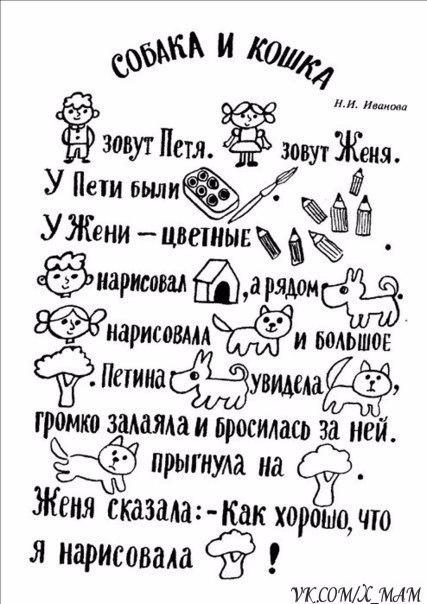 СОБАКА И КОШКА
Н.И. Иванова
зовут Петя. зовут Женя.
У Пети были .
У Жени – цветные .
нарисовал , а рядом .
нарисовала и большое
. Петина увидела ,
громко залаяла и бросилась за ней.
прыгнула на .
Женя сказала: - Как хорошо, что
я нарисовала !
VK.COM/X_MAM